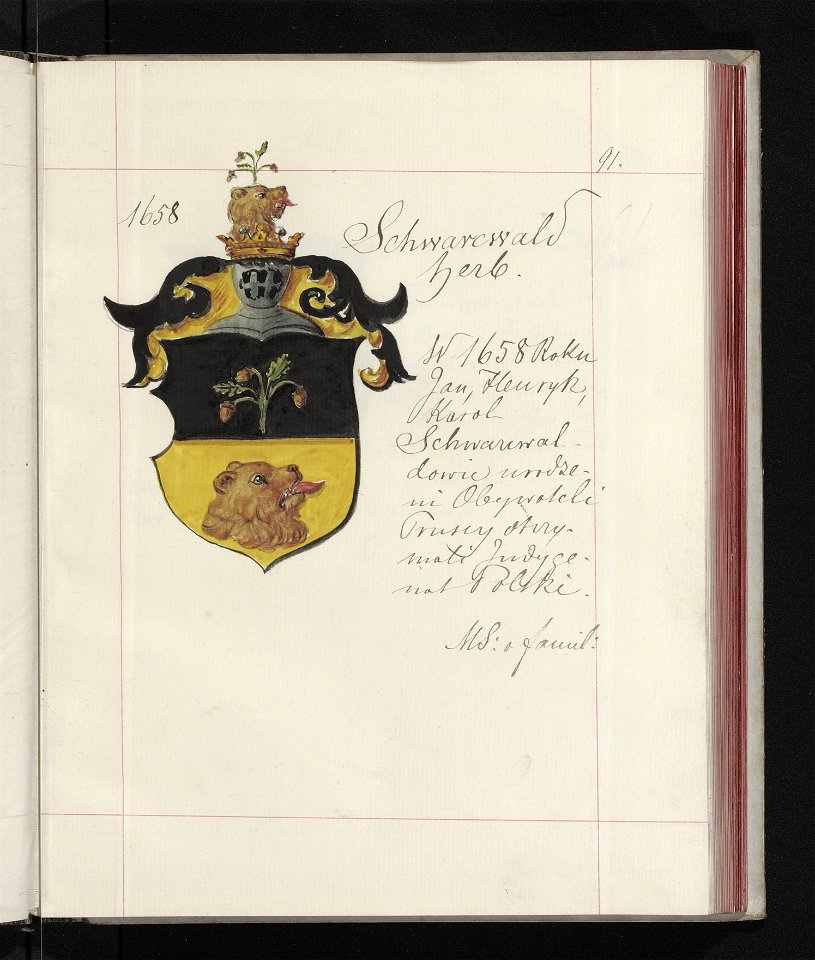 91.
1658
Schwarcwald
herb.
W 1658 Roku
Jan, Henryk,
Karol
Schwarcwal-
dowie urodze-
ni Obywateli
Pruscy otrzy-
mali Indyge-
nat Polski.
MS: o famil: